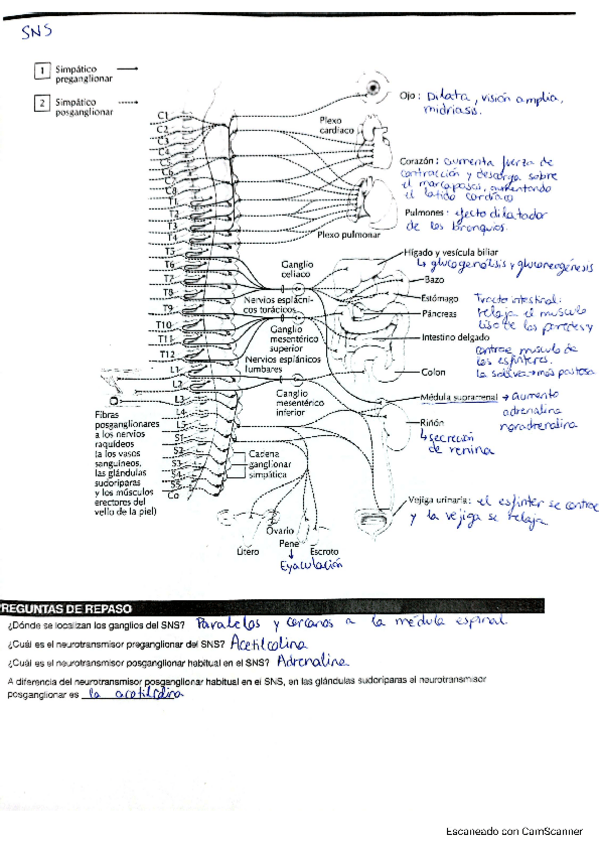 SNS
1 Simpático preganglionar
2 Simpático posganglionar
C1
C2
C3
C4
C8
T1
T2
T3
T4
T5
T6
T7
T8
T9
T10
T11
T12
L1
L2
L4
L5
S1
S2
S3
S4
S5
Co
Plexo
cardíaco
Plexo pulmonar
Ganglio
celíaco
Nervios esplácni-
cos torácicos
Ganglio
mesentérico
superior
Nervios esplánicos
lumbares
Ganglio
mesentérico
inferior
Cadena
ganglionar
simpática
Fibras
posganglionares
a los nervios
raquídeos
(a los vasos
sanguíneos,
las glándulas
sudoríparas
y los músculos
erectores del
vello de la piel)
Ojo: Dilata, visión amplia,
midriasis.
Corazón: aumenta fuerza de
contracción y descarga sobre
el marcapasos, aumentando
el latido cardíaco
Pulmones: efecto dilatador
de los bronquios.
Hígado y vesícula biliar
↳ glucogenólisis y gluconeogénesis
Bazo
Estómago
Páncreas
Intestino delgado
Colon
Tracto intestinal:
relaja el músculo
liso de las paredes y
contrae músculo de
los esfínteres.
la saliva → más pastosa
Médula suprarrenal → aumento
adrenalina
noradrenalina
Riñón
↳ secreción
de renina
Vejiga urinaria: el esfínter se contrae
y la vejiga se relaja
Útero
Ovario
Pene
Escroto
↓
Eyaculación
PREGUNTAS DE REPASO
¿Dónde se localizan los ganglios del SNS? Paralelos y cercanos a la médula espinal
¿Cuál es el neurotransmisor preganglionar del SNS? Acetilcolina
¿Cuál es el neurotransmisor posganglionar habitual en el SNS? Adrenalina
A diferencia del neurotransmisor posganglionar habitual en el SNS, en las glándulas sudoríparas el neurotransmisor
posganglionar es la acetilcolina
Escaneado con CamScanner